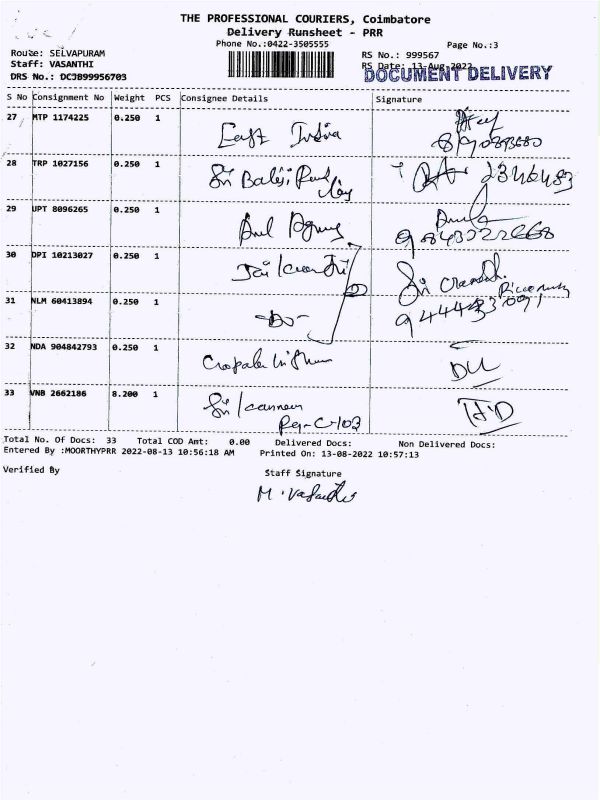 THE PROFESSIONAL COURIERS, Coimbatore
Delivery Runsheet - PRR
Phone No.:0422-3505555
Page No.:3
Route: SELVAPURAM
RS No.: 999567
Staff: VASANTHI
RS Date: 13-Aug-2022
DRS No.: DCJB99956703
DOCUMENT DELIVERY
S No Consignment No Weight PCS Consignee Details Signature
27 MTP 1174225 0.250 1 East India
28 TRP 1027156 0.250 1 Sri Balaji 2346483
29 UPT 8096265 0.250 1
30 DPI 10213027 0.250 1 Sri
31 NLM 60413894 0.250 1 -Do-
32 NDA 904842793 0.250 1
33 VNB 2662186 8.200 1 Sri
Total No. Of Docs: 33 Total COD Amt: 0.00 Delivered Docs: Non Delivered Docs:
Entered By :MOORTHYPRR 2022-08-13 10:56:18 AM Printed On: 13-08-2022 10:57:13
Verified By Staff Signature
M. Vasanthi